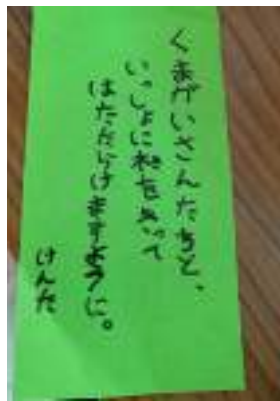 くまがいさんたちと、
いっしょに和をもって
はたらけますように。
けんた